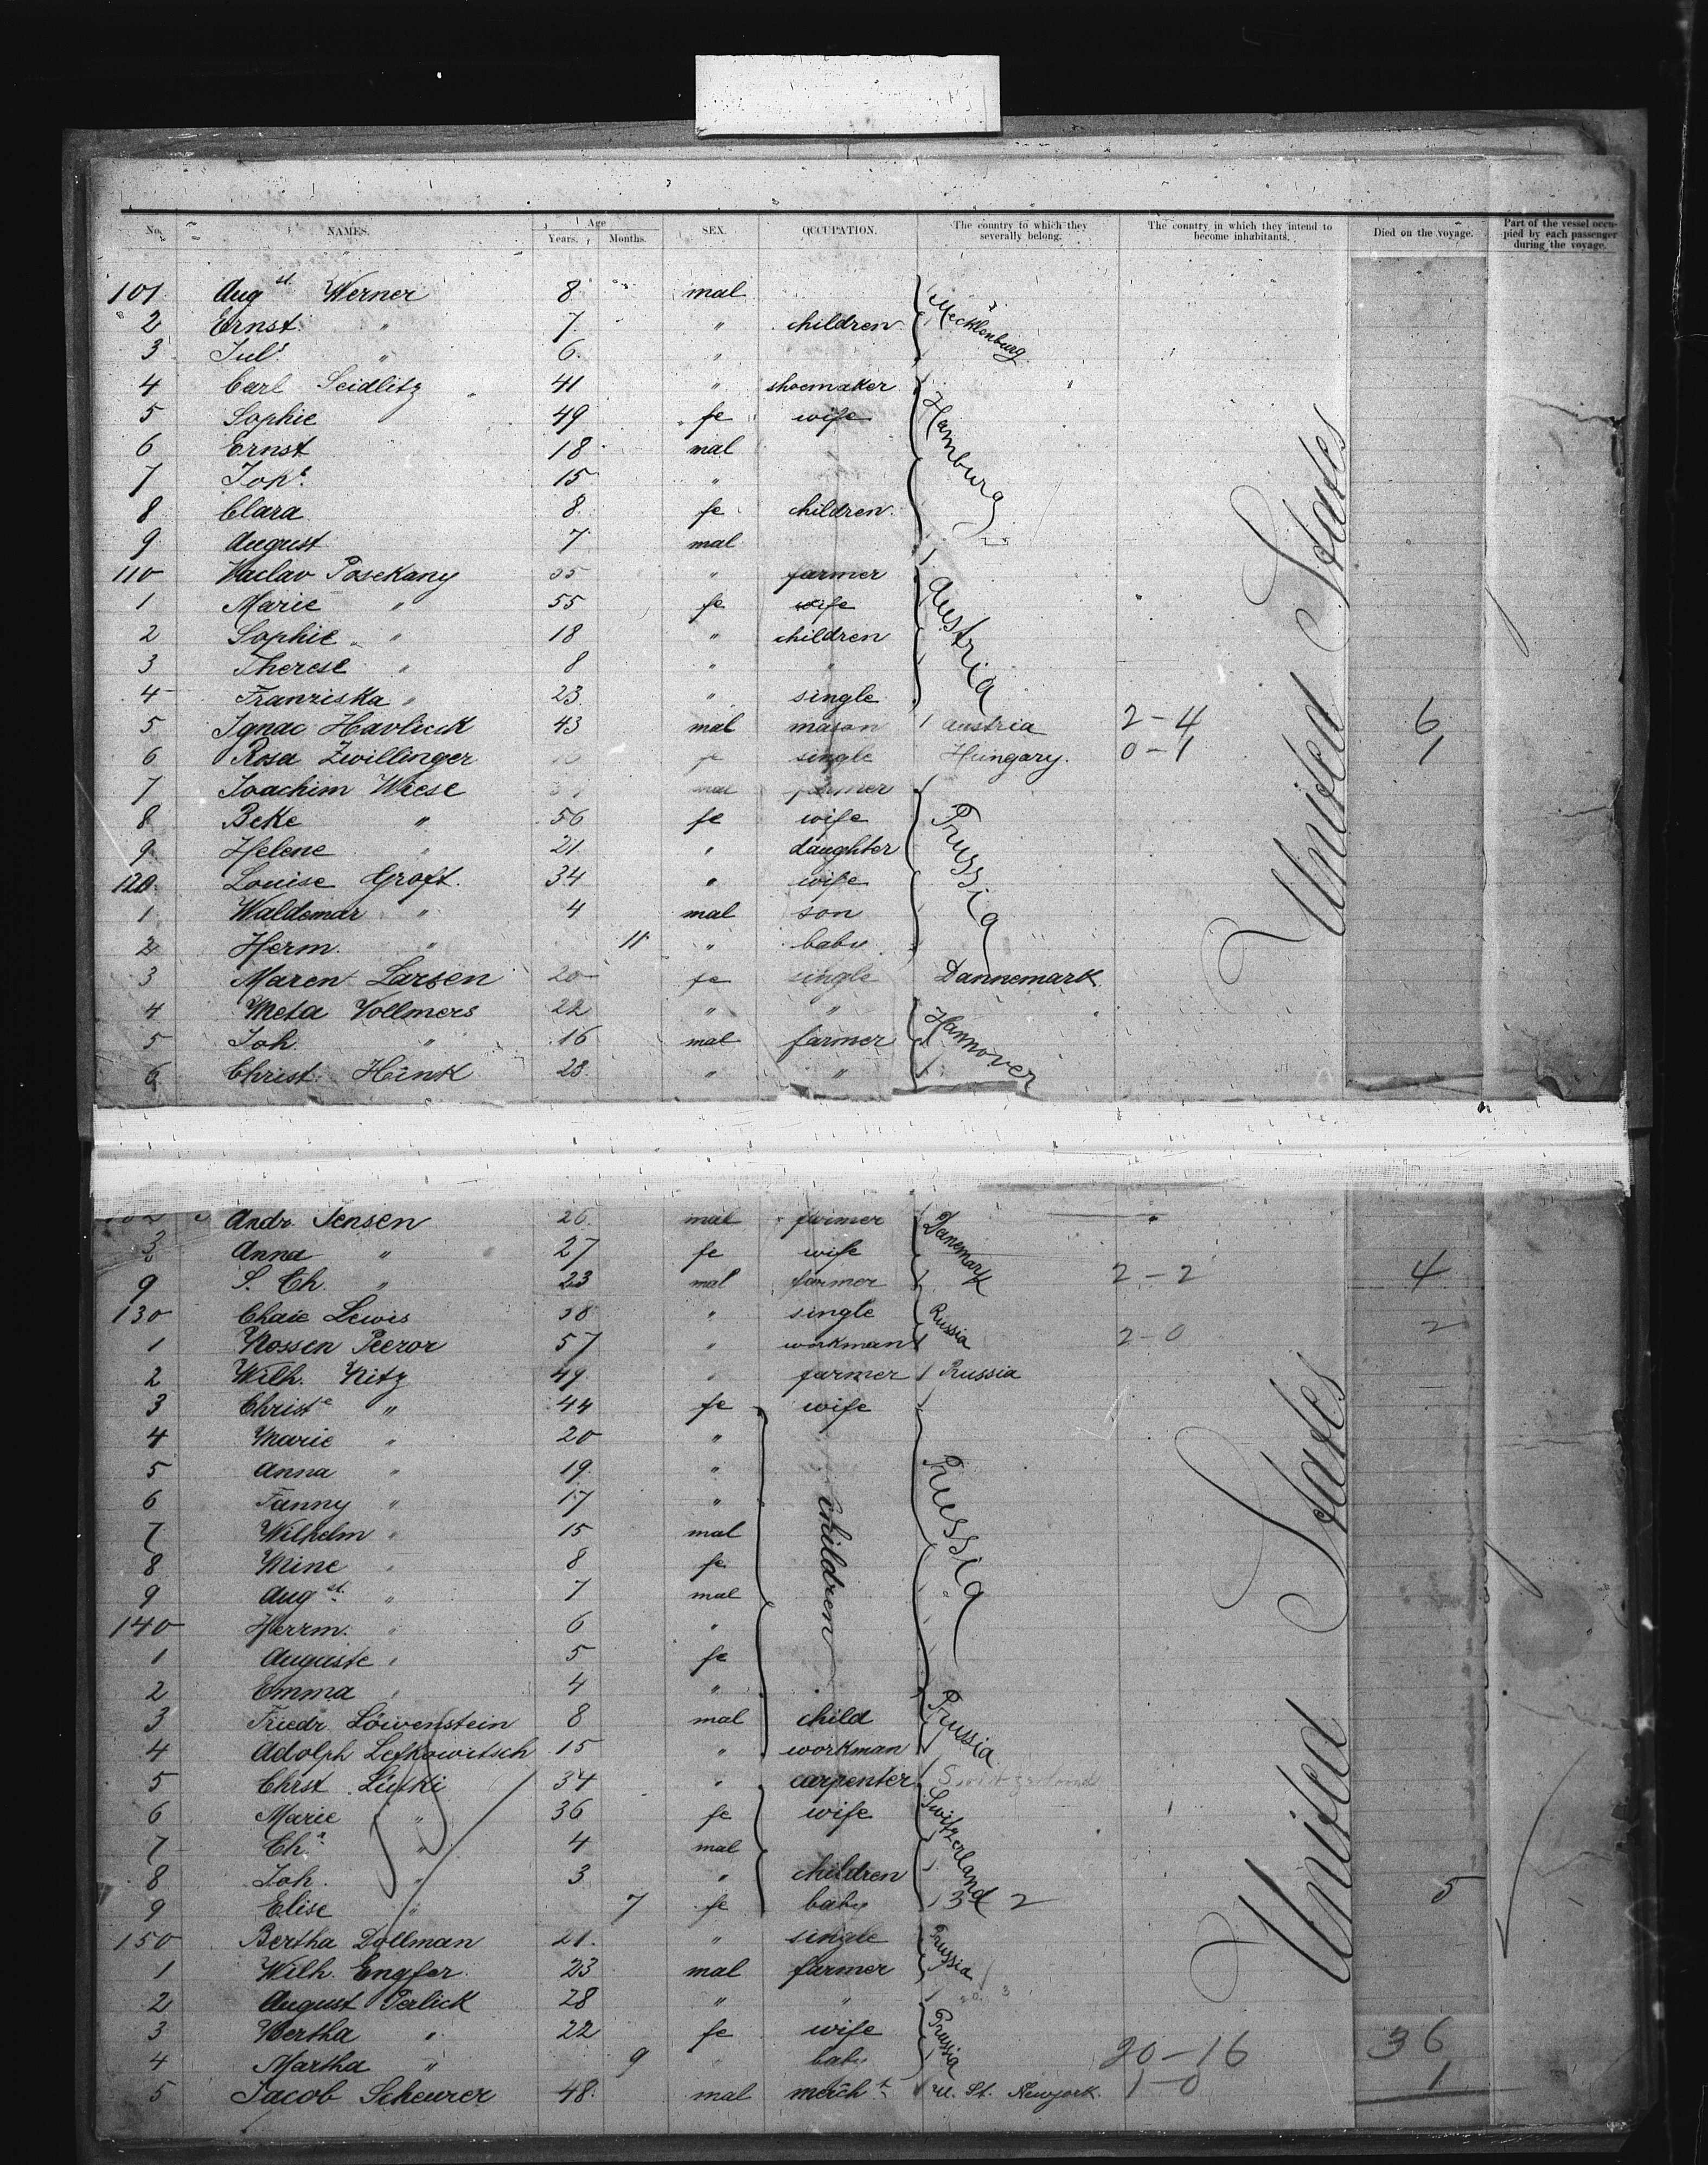 No. NAMES. Age Years. Months. SEX. OCCUPATION. The country to which they severally belong. The country in which they intend to become inhabitants. Died on the voyage. Part of the vessel occupied by each passenger during the voyage.
101 Aug st. Werner 8 mal Mecklenburg
2 Ernst " 7 " children
3 Jul s " 6 "
4 Carl Seidlitz 41 " shoemaker Hamburg
5 Sophie 49 fe wife
6 Ernst 18 mal
7 Joh s 15 "
8 Clara 8 fe children
9 August 7 mal
110 Vaclav Posekany 55 " farmer Austria
1 Marie " 55 fe wife
2 Sophie " 18 " children
3 Therese " 8 " "
4 Franziska " 23 " single
5 Ignac Havlicek 43 mal mason Austria 2-4 6
6 Rosa Zwillinger fe single Hungary. 0-1 1
7 Joachim Wiese mal farmer Prussia
8 Beke " 56 fe wife
9 Helene " 21 " daughter
120 Louise Groft. 34 " wife
1 Waldemar " 4 mal son
2 Herm. " 11 " baby
3 Maren Larsen 20 fe single Dannemark
4 Meta Vollmers 22 " " Hannover
5 Joh " 16 mal farmer
6 Christ. Hink 28 " "
United States
Andr. Jensen 26 mal farmer Danemark
Anna " 27 fe wife
9 S. Ch. " 23 mal farmer 2-2 4
130 Chaie Lewis 38 " single Russia
1 Nossen Peeror 57 " workman 2-0 2
2 Wilh. Nitz 49 " farmer Prussia
3 Christ e " 44 fe wife Prussia
4 Marie " 20 " children
5 Anna " 19 "
6 Fanny " 17 "
7 Wilhelm " 15 mal
8 Mine " 8 fe
9 Aug st. " 7 mal
140 Herrm. " 6 "
1 Auguste " 5 fe
2 Emma " 4 "
3 Friedr. Löwenstein 8 mal child Prussia
4 Adolph Lefkowitsch 15 " workman
5 Christ Lüski 34 " carpenter Switzerland
6 Marie " 36 fe wife Switzerland
7 Ch s " 4 mal
8 Joh. " 3 " children
9 Elise " 7 fe baby 3 2 5
150 Bertha Dollman 21. " single Prussia
1 Wilh. Engfer 23 mal farmer
2 August Perlick 28 " " Prussia
3 Bertha " 22 fe wife
4 Martha " 9 " baby 20-16 36
5 Jacob Scheurer 48. mal merch t U. St. Newyork. 1-0 1
United States